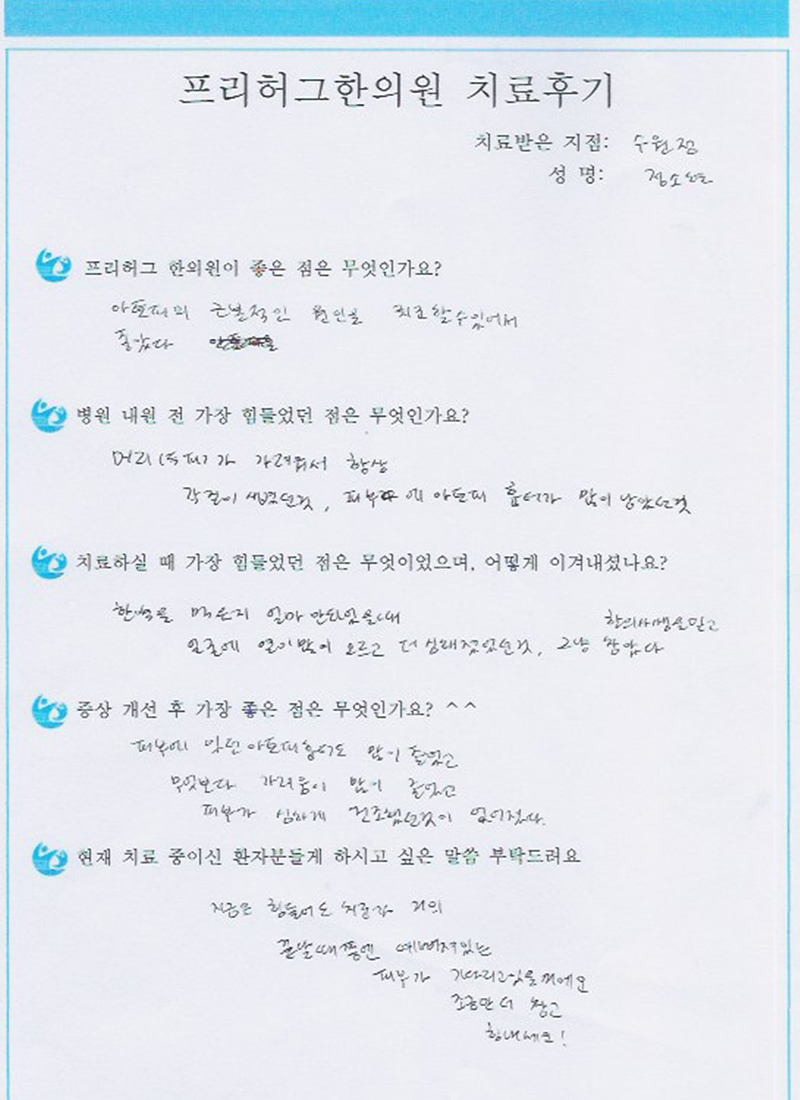 프리허그한의원 치료후기
치료받은 지점: 수원점
성 명:
프리허그 한의원이 좋은 점은 무엇인가요?
아토피의 근본적인 원인을 치료할수있어서
좋았다
병원 내원 전 가장 힘들었던 점은 무엇인가요?
머리(두피)가 가려워서 항상
각질이 생겼던것, 피부에 아토피 흉터가 많이 남았던것
치료하실 때 가장 힘들었던 점은 무엇이었으며, 어떻게 이겨내셨나요?
한약을 먹은지 얼마 안되었을때 한의사쌤을믿고
얼굴에 열이많이 오르고 더 심해졌었던것, 그냥 참았다
증상 개선 후 가장 좋은 점은 무엇인가요? ^^
피부에 있던아토피흉터도 많이 줄었고
무엇보다 가려움이 많이 줄었고
피부가 심하게 건조했던것이 없어졌다.
현재 치료 중이신 환자분들게 하시고 싶은 말씀 부탁드려요
지금은 힘들어도 치료가 거의
끝날때쯤엔 예뻐져있는
피부가 기다리고있을꺼에요
조금만 더 참고
힘내세요!